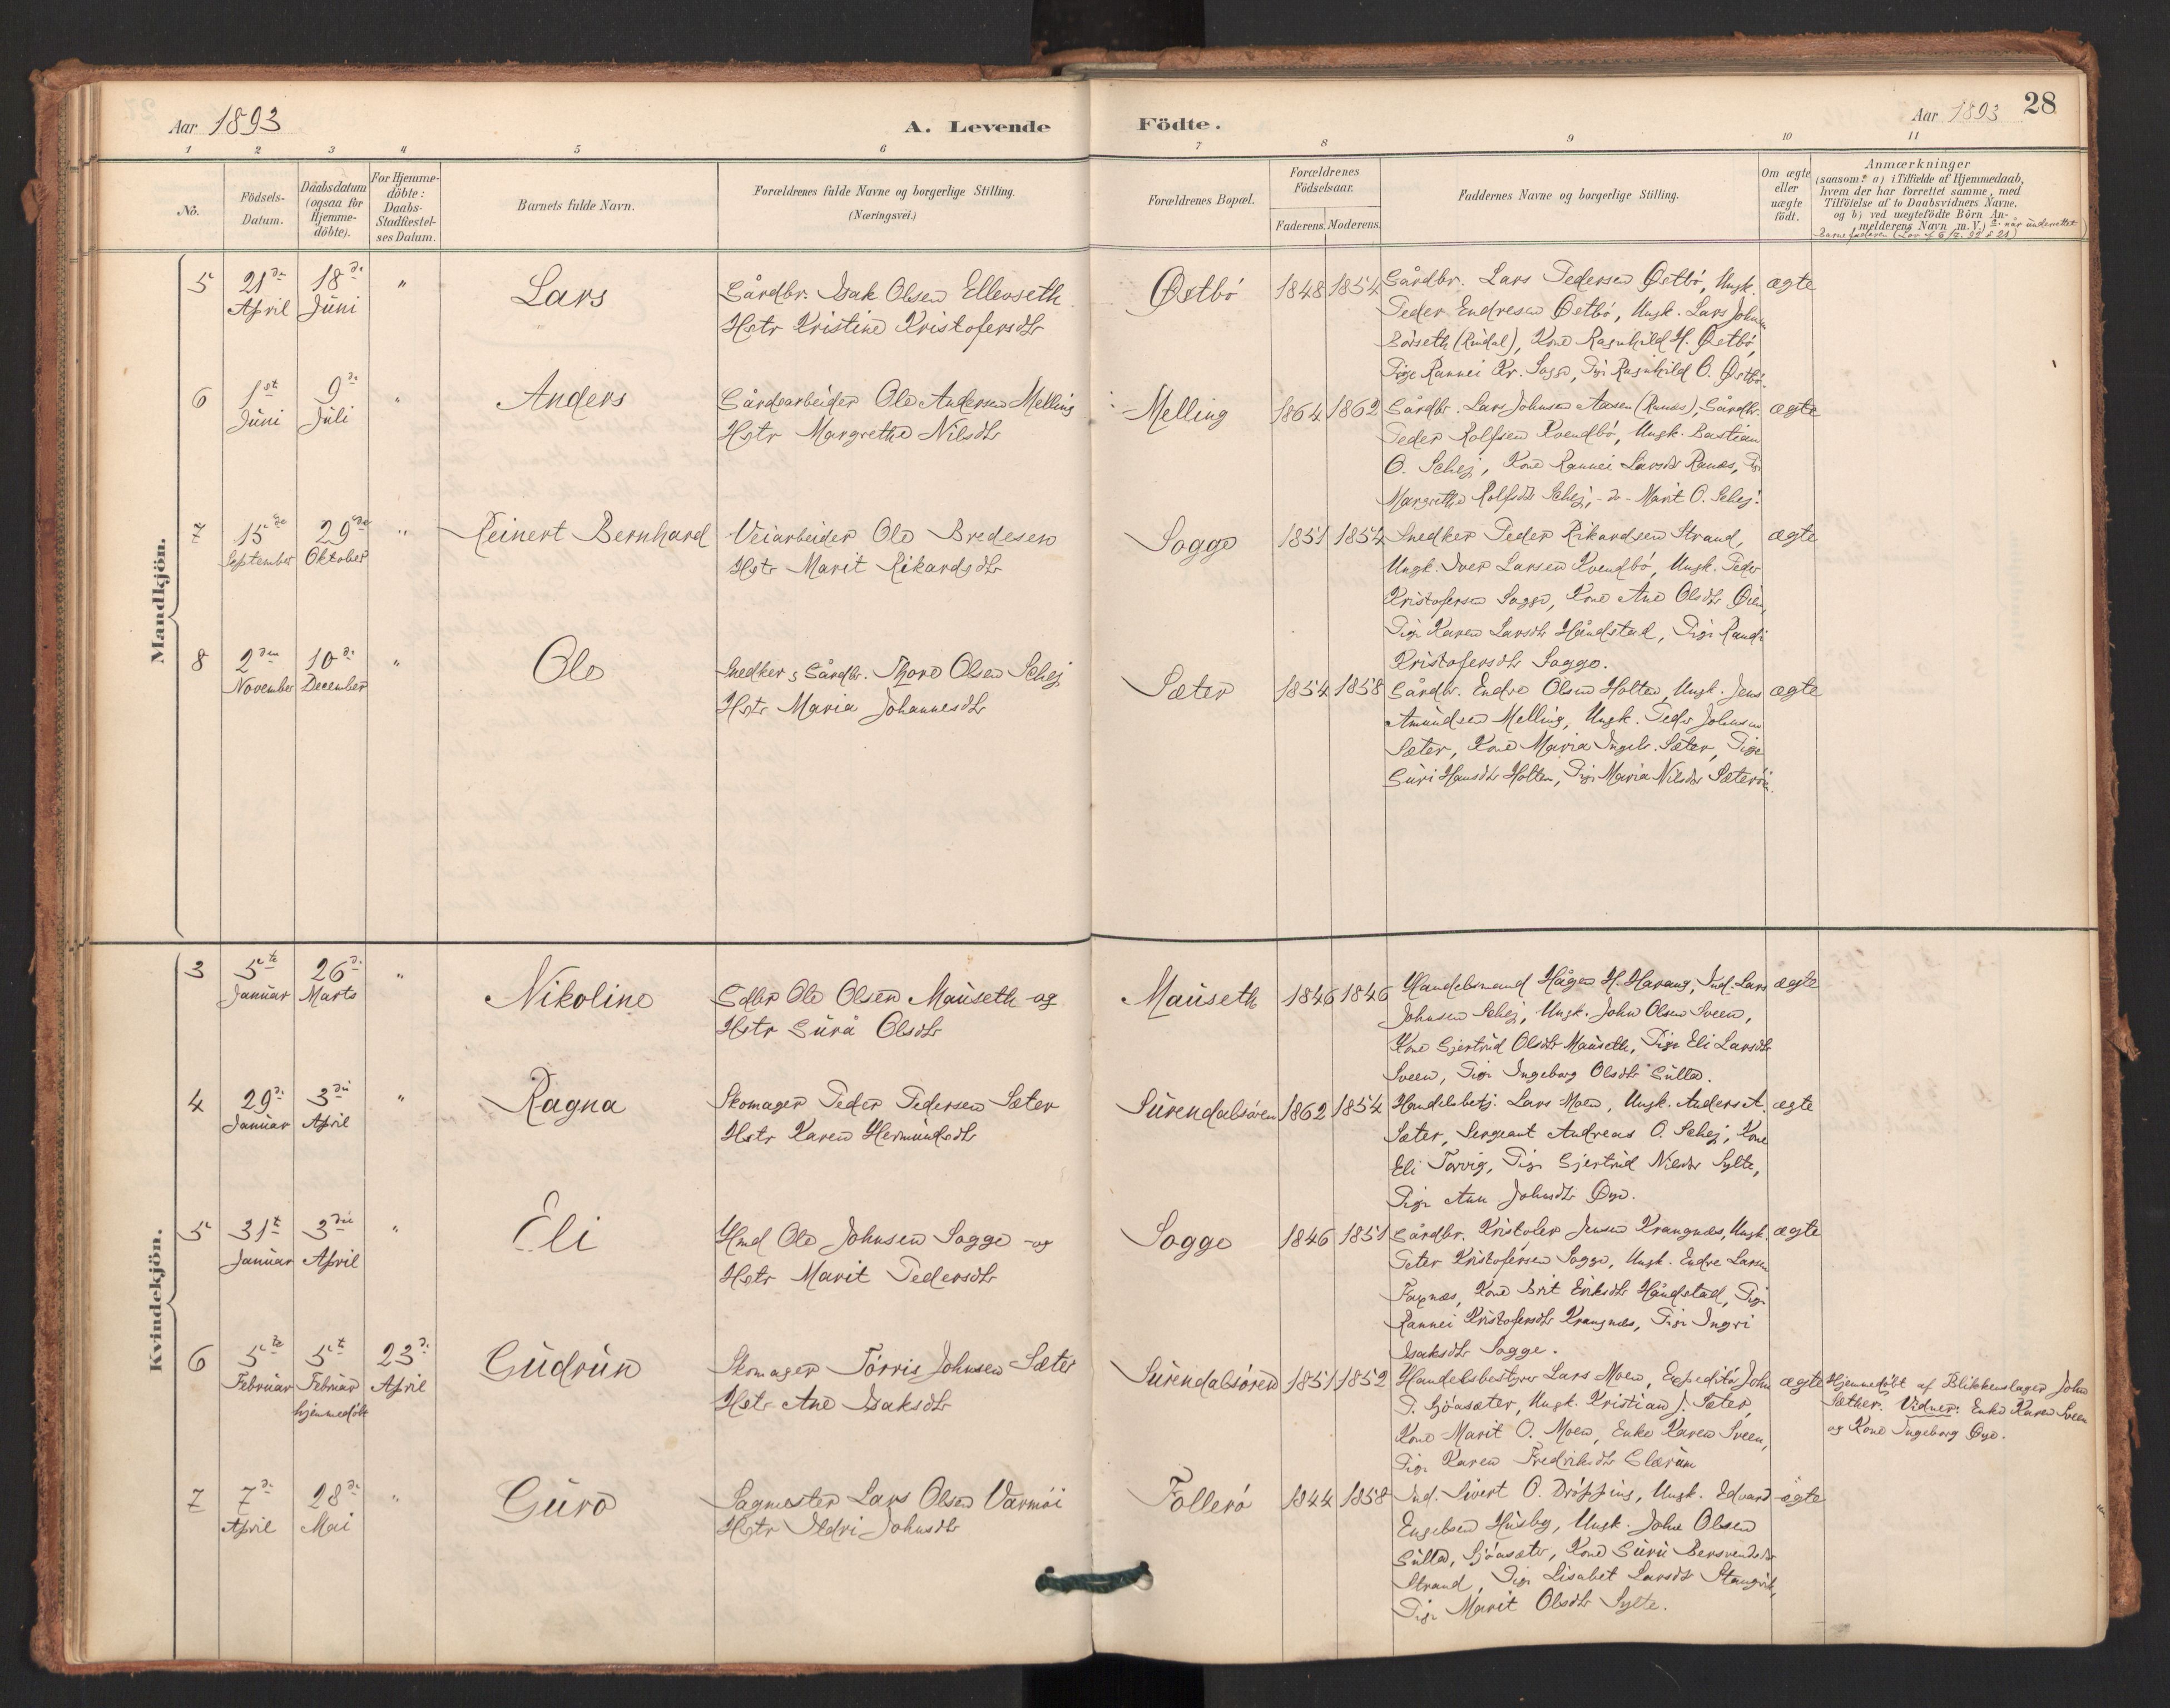 Aar 1893
A. Levende
Födte.
Aar 1893
28
1 2 3 4 5 6 7 8 9 10 11
No.
Födsels-
Datum.
Daabsdatum
(ogsaa for
Hjemme-
döbte).
For Hjemme-
döbte:
Daabs-
Stadfæstel-
ses Datum.
Barnets fulde Navn.
Forældrenes fulde Navne og borgerlige Stilling.
(Næringsvei.)
Forældrenes Bopæl.
Forældrenes
Födselsaar.
Faderens. Moderens.
Faddernes Navne og borgerlige Stilling.
Om ægte
eller
uægte
födt.
Anmærkninger
(saasom: a) i Tilfælde af Hjemmedaab,
hvem der har forrettet samme, med
Tilföielse af to Daabsvidners Navne.
og b) ved uægtefödte Börn An-
melderens Navn m. V.)
Mandkjön.
5 21de April 18de Juni " Lars
Gårdbr. Isak Olsen Ellevseth
Hstr Kristine Kristofersdtr
Østbö 1848 1854
Gårdbr. Lars Pedersen Østbö, Ungk.
Peder Endresen Østbö, Ungk. Lars Johnsen
Börseth (Rindal), Kone Ragnhild H. Østbö,
Pige Rannei Kr. Sogge, Pige Ragnhild O. Østbö.
ægte
6 1st Juni 9de Juli " Anders
Gårdarbeider Ole Andersen Melling
Hstr Margrethe Nilsdtr
Melling 1864 1862
Gårdbr. Lars Johnsen Aasen (Ranæs), Gårdbr.
Peder Rolfsen Kvendbö, Ungk. Bastian
O. Schej, Kone Rannei Larsdtr Ranæs, Pi
Margrethe Rolfsdtr Schej, -do- Marit O. Schej.
ægte
7 15de September 29de Oktober " Reinert Bernhard
Veiarbeider Ole Bredesen
Hstr Marit Rikardsdtr
Sogge 1851 1854
Snedker Peder Rikardsen Strand,
Ungk. Iver Larsen Kvendbö, Ungk. Peder
Kristofersen Sogge, Kone Ane Olsdtr Øien,
Pige Karen Larsdtr Håndstad, Pige Randi
Kristofersdtr Sogge.
ægte
8 2den November 10de December " Ole
Snedker & Gårdbr. Thore Olsen Schej
Hstr Maria Johannesdtr
Sæter 1854 1858
Gårdbr. Endre Olsen Holten, Ungk. Jens
Amundsen Melling, Ungk. Peder Johnsen
Sæter, Kone Maria Ingebr. Sæter, Pige
Guri Hansdtr Holten, Pige Maria Nilsdtr Sæteröi.
ægte
Kvindekjön.
3 5te Januar 26de Marts " Nikoline
Gdbr Ole Olsen Mauseth og
Hstr Gurå Olsdtr
Mauseth 1846 1846
Handelsmand Hågen H. Harang, Ind. Lars
Johnsen Schej, Ungk. John Olsen Sveen,
Kone Gjertrud Olsdtr Mauseth, Pige Eli Larsdtr
Sveen, Pige Ingeborg Olsdtr Gulla.
ægte
4 29de Januar 3die April " Ragna
Skomager Peder Pedersen Sæter
Hstr Karen Hermundsdtr
Surendalsören 1862 1854
Handelsbetj. Lars Moen, Ungk. Anders A.
Sæter, Sergeant Andreas O. Schej, Kone
Eli Torvig, Pige Gjertrud Nilsdtr Sylte,
Pige Ane Johnsdtr Øye.
ægte
5 31te Januar 3die April " Eli
Hmd Ole Johnsen Sogge og
Hstr Marit Pedersdtr
Sogge 1846 1851
Gårdbr. Kristofer Jensen Krangnæs, Ungk.
Peter Kristofersen Sogge, Ungk. Endre Larsen
Foxnæs, Kone Brit Eriksdtr Håndstad, Pige
Rannei Kristofersdtr Krangnæs, Pige Ingri
Isaksdtr Sogge.
ægte
6 5te Februar 5te Februar hjemmedöbt 23de April Gudrun
Skomager Törris Johnsen Sæter
Hstr Ane Isaksdtr
Surendalsören 1851 1852
Handelsbestyrer Lars Moen, Expeditör John
T. Sjöasæter, Ungk. Kristian J. Sæter,
Kone Marit O. Moen, Enke Karen Sveen,
Pige Karen Fredriksdtr Glærum
ægte
Hjemmedöbt af Blikkenslager John
Sæther. Vidner: Enke Karen Sveen
og Kone Ingeborg Øye.
7 7de April 28de Mai " Guro
Sagmester Lars Olsen Varmöi
Hstr Ildri Johnsdtr
Follerö 1844 1858
Ind. Sivert O. Dröpping, Ungk. Edvard
Engelsen Husby, Ungk. John Olsen
Gulla, Sjöasæter, Kone Guru Bersvendsdtr
Strand, Pige Lisabet Larsdtr Stangvik,
Pige Marit Olsdtr Sylte.
ægte